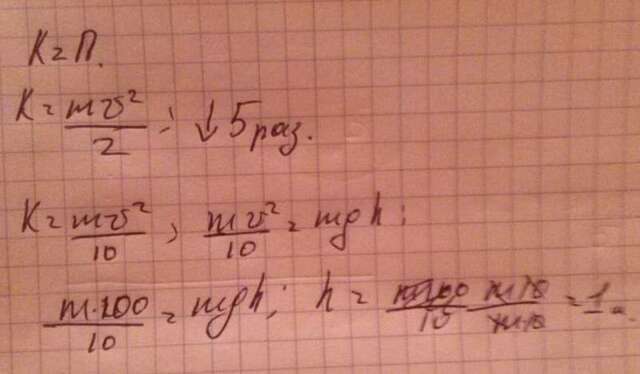 K = П.
K = mv²/2 ; ↓ 5 раз.
K = mv²/10 , mv²/10 = mgh ;
m·100/10 = mgh ; h = m·10/m·10 = 1 м.